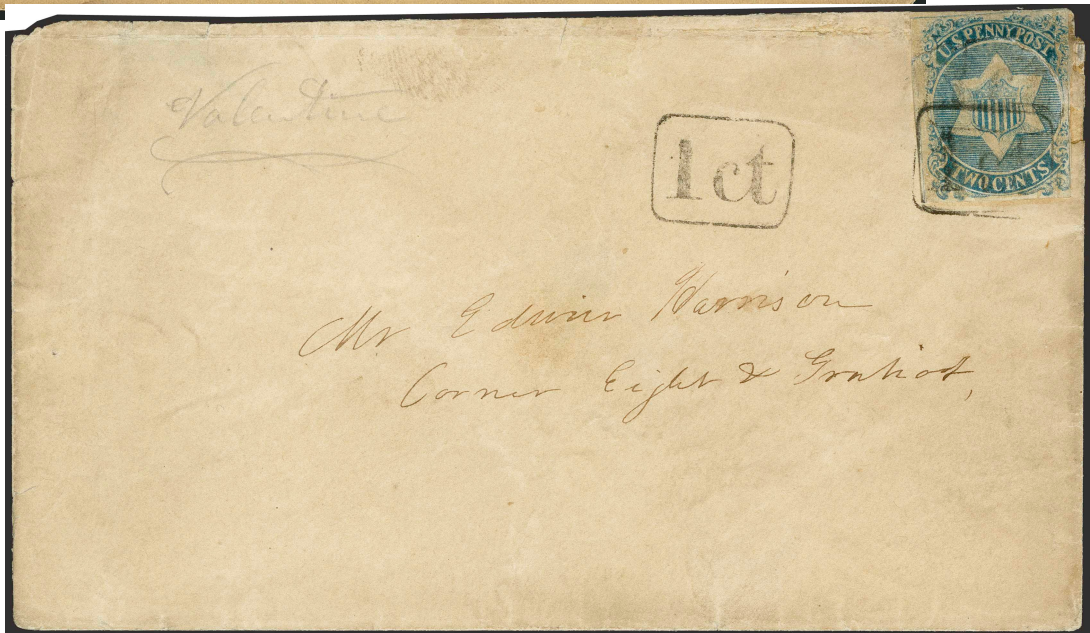 Valentine
U.S PENNY POST
TWO CENTS
1 ct
Mr Edwin Harrison
Corner Eight & Gratiot,